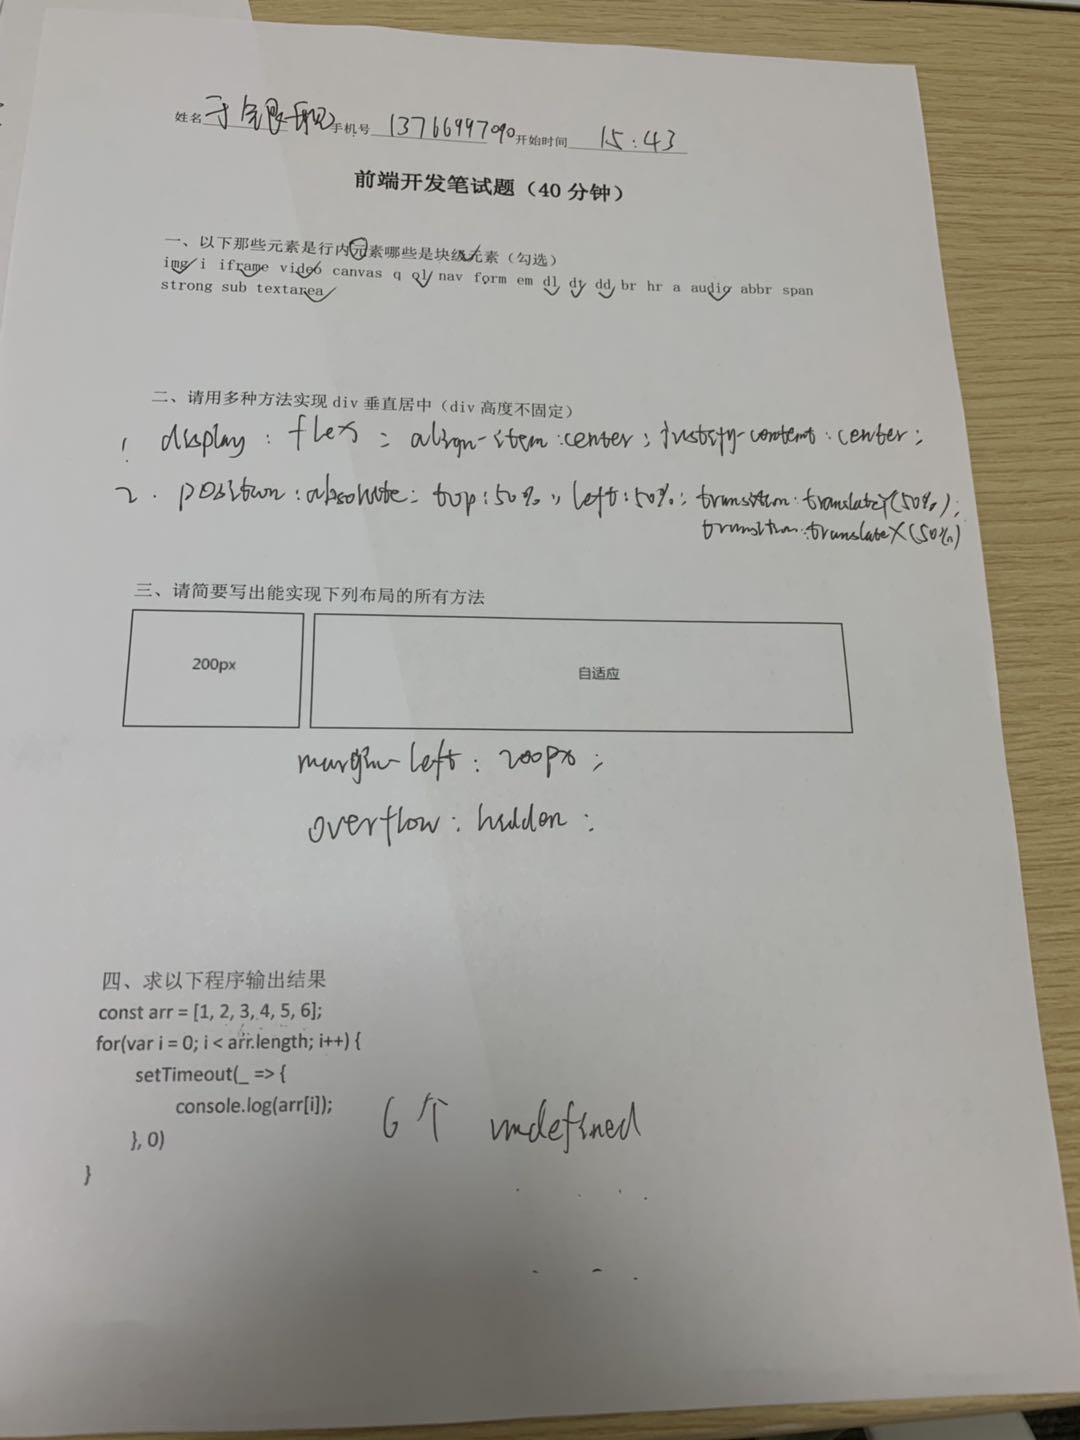 姓名 手机号 13766997090 开始时间 15:43
前端开发笔试题（40 分钟）
一、以下那些元素是行内元素哪些是块级元素（勾选）
img i iframe video canvas q ol nav form em dl dt dd br hr a audio abbr span
strong sub textarea
二、请用多种方法实现 div 垂直居中（div 高度不固定）
1. display: flex; align-item:center; justify-content:center;
2. position:absolute; top:50%; left:50%; transition:translateY(50%);
transition:translateX(50%)
三、请简要写出能实现下列布局的所有方法
200px 自适应
margin-left: 200px;
overflow: hidden;
四、求以下程序输出结果
const arr = [1, 2, 3, 4, 5, 6];
for(var i = 0; i < arr.length; i++) {
setTimeout(_ => {
console.log(arr[i]);
}, 0)
6个 undefined
}